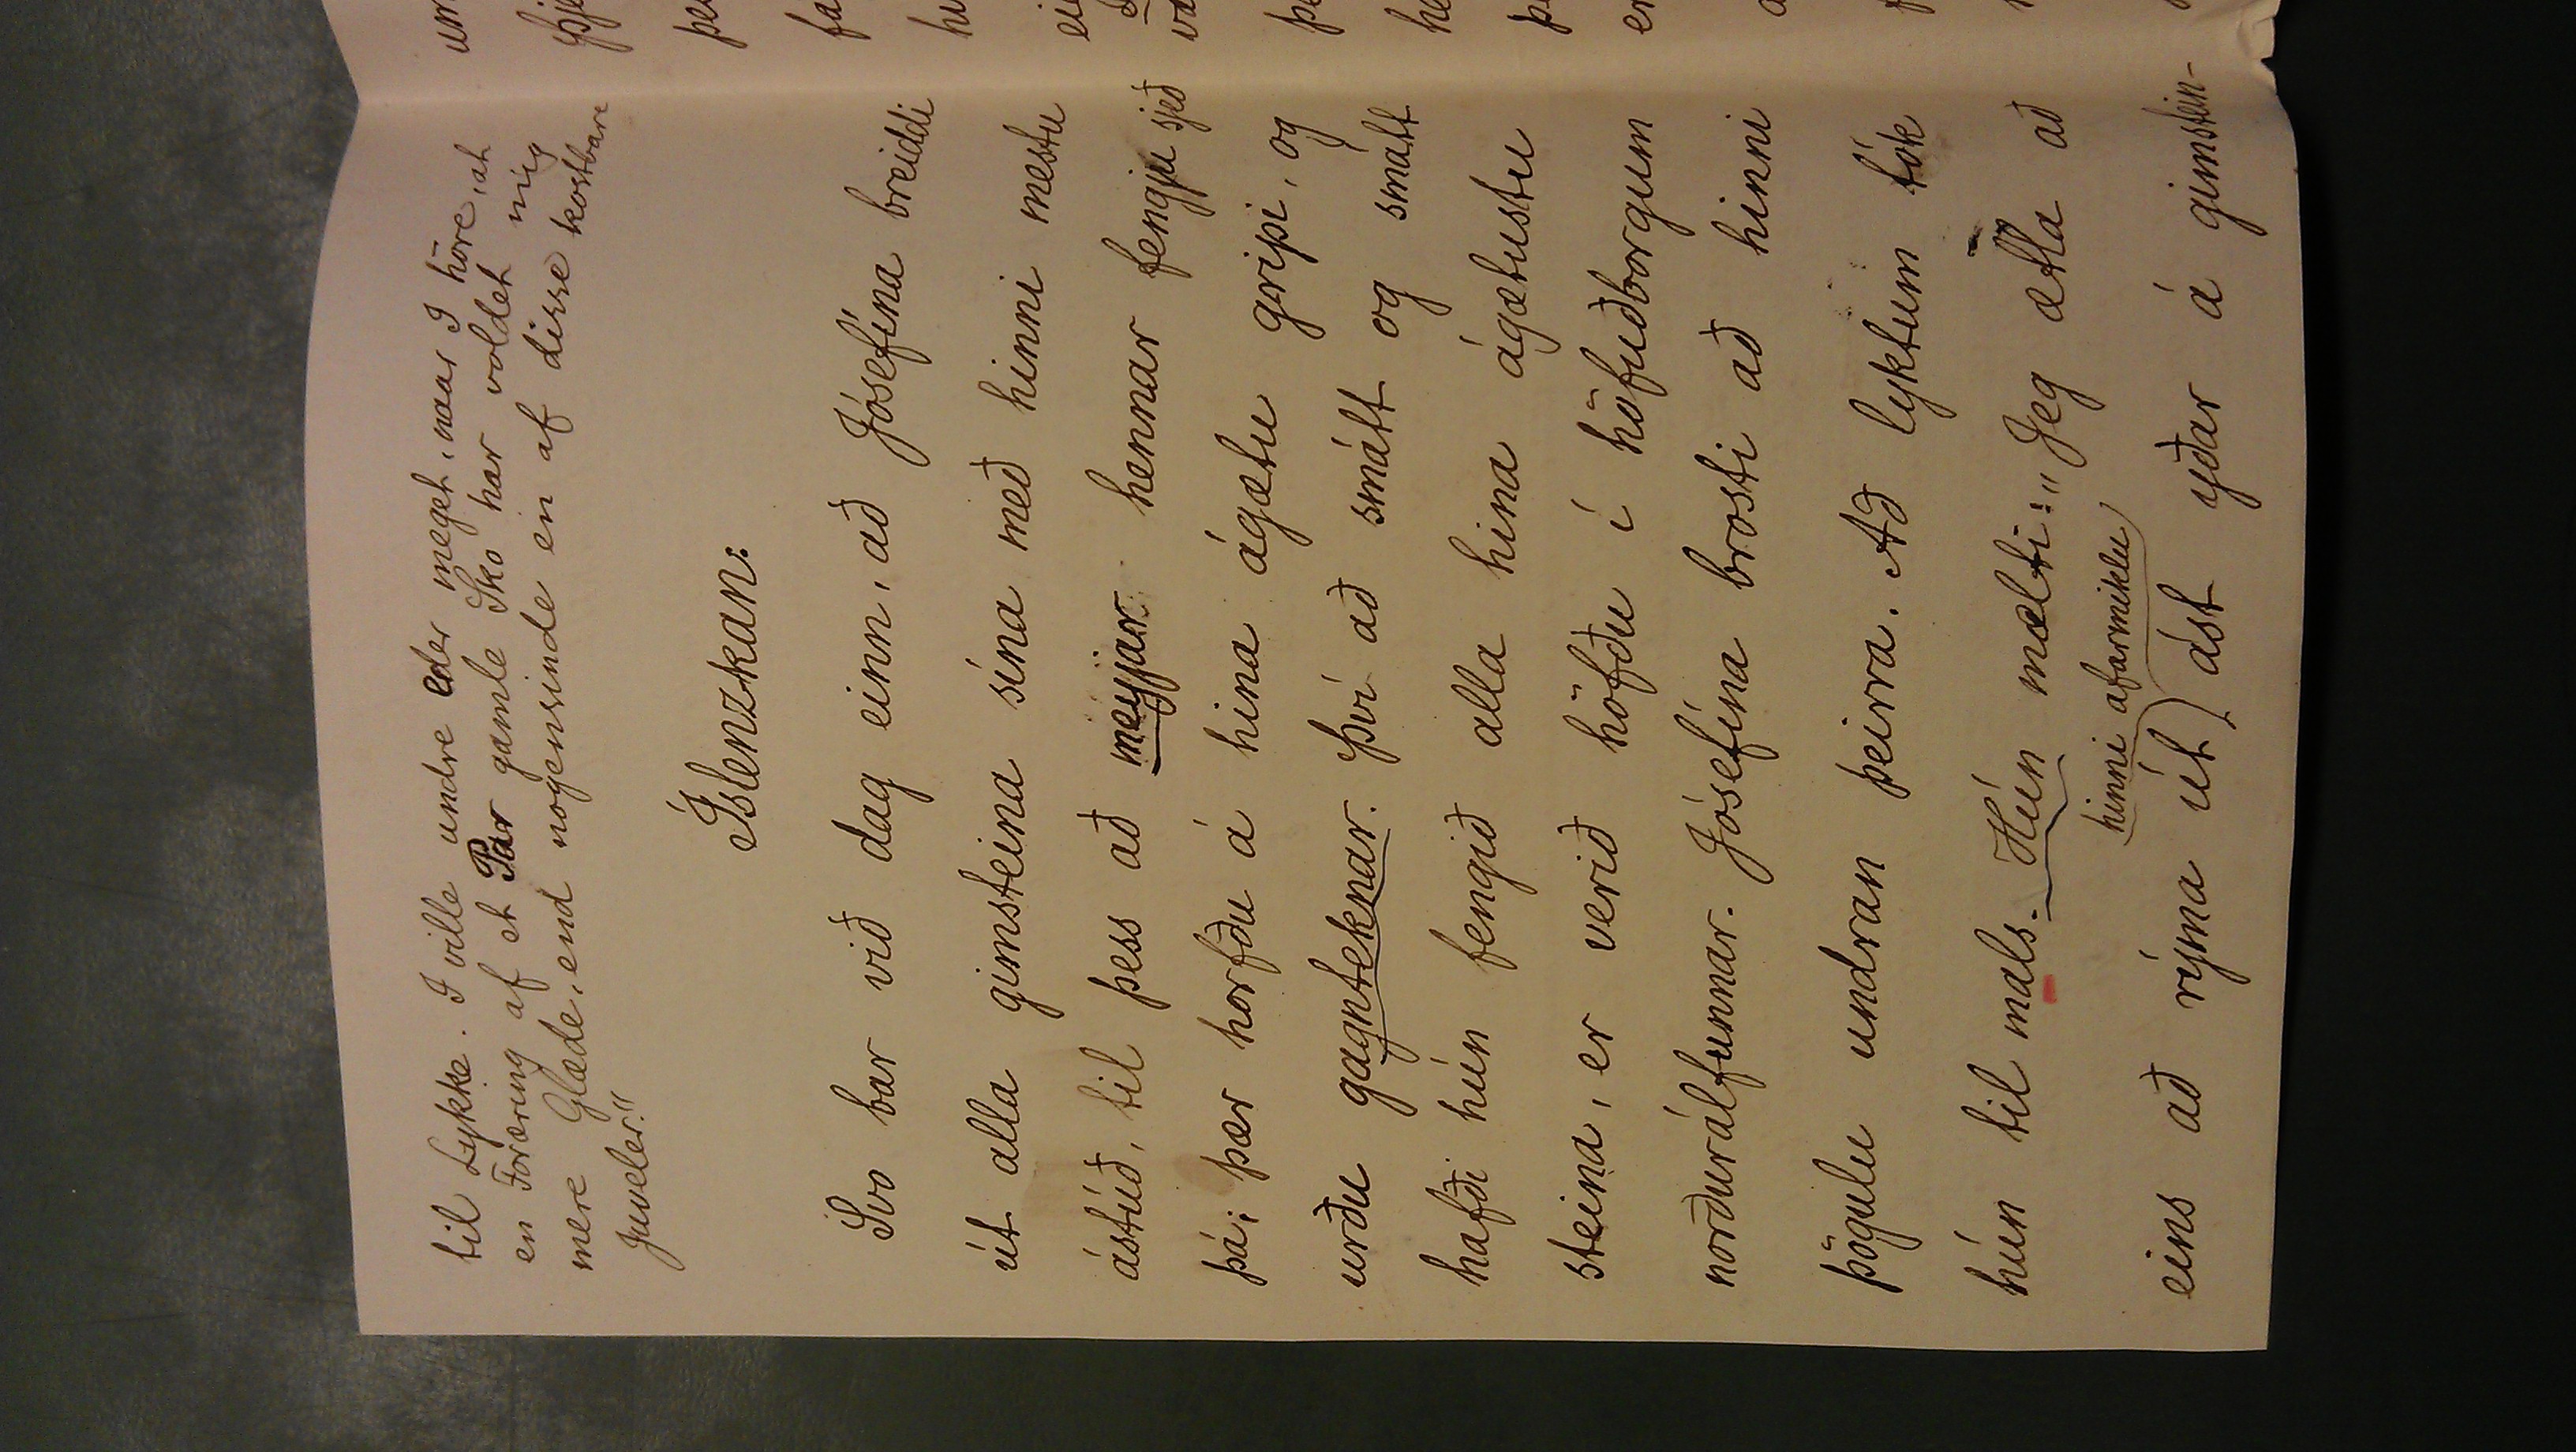 til Lykke. I ville undre eder meget, naar I höre, at
en Foræring af et Par gamle Sko har voldet mig
mere Glæde, end nogensinde en af disse kostbare
Juveler."
Íslenzkan:
Svo bar við dag einn, að Jósefína breiddi
út alla gimsteina sína með hinni mestu
ástúð, til þess að meyjar hennar fengju sjeð
þá; þær horfðu á hina ágætu gripi, og
urðu gagnteknar. Því að smátt og smátt
hafði hún fengið alla hina ágætustu
steina, er verið höfðu í höfuðborgum
norðurálfunnar. Jósefína brosti að hinni
þögulu undran þeirra. Að lyktum tók
hún til mals. Hún mælti: "Jeg ætla að
hinni afarmiklu
eins að rýma út) ást yðar á gimstein-